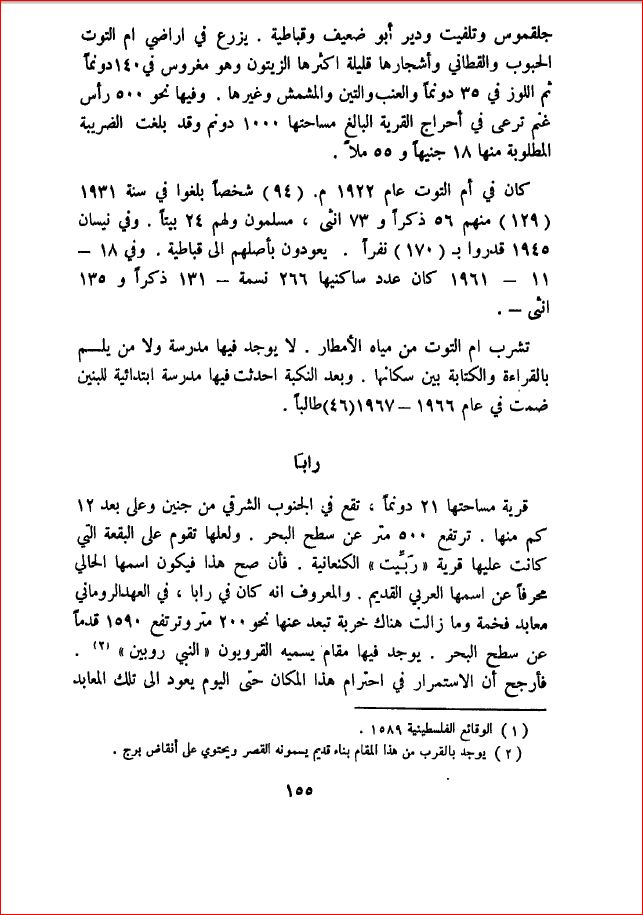 جلقموس وتلفيت ودير أبو ضعيف وقباطية . يزرع في اراضي ام التوت
الحبوب والقطاني وأشجارها قليلة اكثرها الزيتون وهو مغروس في ١٤٠ دونماً
ثم اللوز في ٣٥ دونماً والعنب والتين والمشمش وغيرها . وفيها نحو ٥٠٠ رأس
غنم ترعى في أحراج القرية البالغ مساحتها ١٠٠٠ دونم وقد بلغت الضريبة
المطلوبة منها ١٨ جنيهاً و ٥٥ ملاً .
كان في أم التوت عام ١٩٢٢ م. (٩٤) شخصاً بلغوا في سنة ١٩٣١
(١٢٩) منهم ٥٦ ذكراً و ٧٣ انثى ، مسلمون ولهم ٢٤ بيتاً . وفي نيسان
١٩٤٥ قدروا بـ (١٧٠) نفراً . يعودون بأصلهم الى قباطية . وفي ١٨ –
١١ – ١٩٦١ كان عدد ساكنيها ٢٦٦ نسمة – ١٣١ ذكراً و ١٣٥
انثى – .
تشرب ام التوت من مياه الأمطار . لا يوجد فيها مدرسة ولا من يلـــم
بالقراءة والكتابة بين سكانها . وبعد النكبة احدثت فيها مدرسة ابتدائية للبنين
ضمت في عام ١٩٦٦ – ١٩٦٧ (٤٦) طالباً .
رابا
قرية مساحتها ٢١ دونماً ، تقع في الجنوب الشرقي من جنين وعلى بعد ١٢
كم منها . ترتفع ٥٠٠ متر عن سطح البحر . ولعلها تقوم على البقعة التي
كانت عليها قرية « رَبِّيت » الكنعانية . فأن صح هذا فيكون اسمها الحالي
محرفاً عن اسمها العربي القديم . والمعروف انه كان في رابا ، في العهد الروماني
معابد فخمة وما زالت هناك خربة تبعد عنها نحو ٢٠٠ متر وترتفع ١٥٩٠ قدماً
عن سطح البحر . يوجد فيها مقام يسميه القرويون « النبي روبين » (٢) .
فأرجح أن الاستمرار في احترام هذا المكان حتى اليوم يعود الى تلك المعابد
(١) الوقائع الفلسطينية ١٥٨٩ .
(٢) يوجد بالقرب من هذا المقام بناء قديم يسمونه القصر ويحتوي على أنقاض برج .
١٥٥